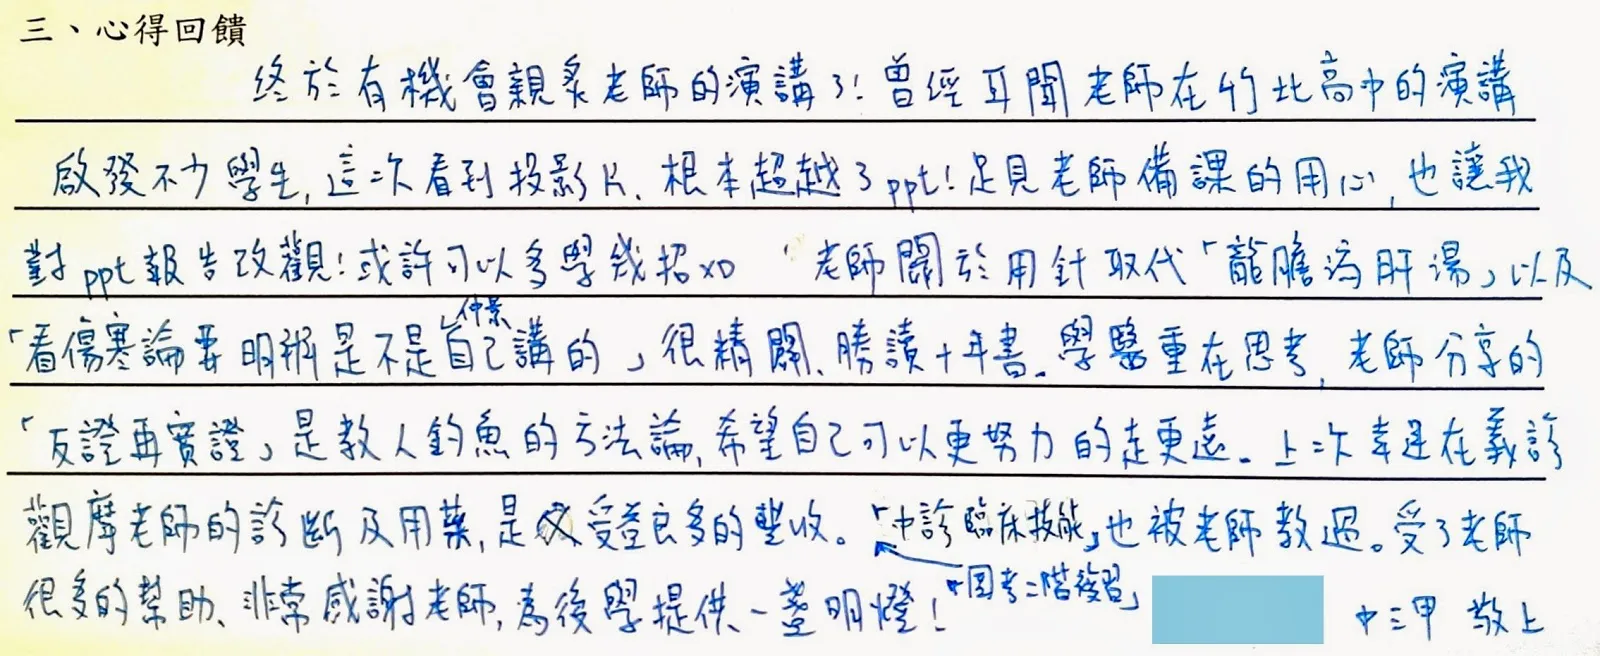 三、心得回饋
終於有機會親炙老師的演講了!曾經耳聞老師在竹北高中的演講
啟發不少學生,這次看到投影片、根本超越了ppt!足見老師備課的用心,也讓我
對ppt報告改觀!或許可以多學幾招XD 老師關於用針取代「龍膽瀉肝湯」以及
仲景
「看傷寒論要明辨是不是自己講的」很精闢、勝讀十年書。學醫重在思考,老師分享的
「反證再實證」是教人釣魚的方法論,希望自己可以更努力的走更遠。上次幸運在義診
觀摩老師的診斷及用藥,是次受益良多的豐收。「中診臨床技能」也被老師教過。受了老師
「國考二階複習」
很多的幫助、非常感謝老師,為後學提供一盞明燈! 中三甲 敬上